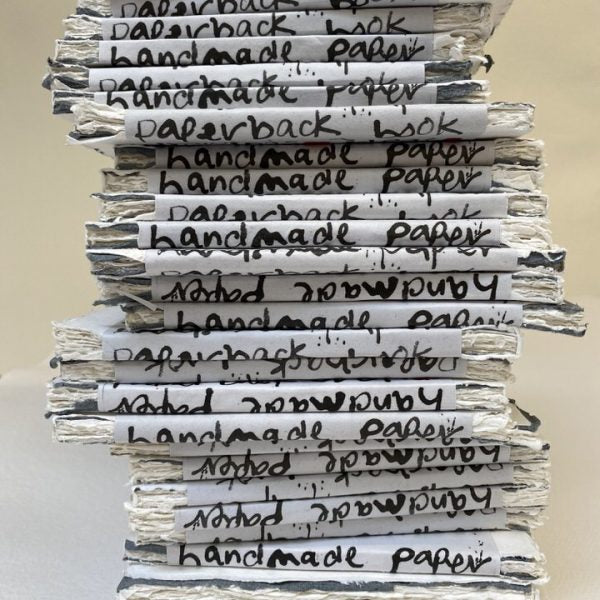 paperback book
handmade paper
paperback
handmade paper
paperback book
handmade paper
handmade paper
paperback book
handmade paper
handmade paper
handmade paper
handmade paper
paperback book
paperback
handmade paper
handmade paper
handmade paper
handmade paper
handmade paper